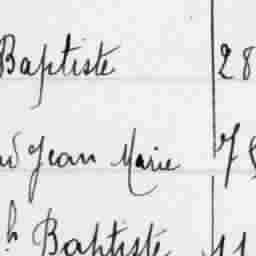 Baptiste 28
Jean Marie 7
h Baptiste 11